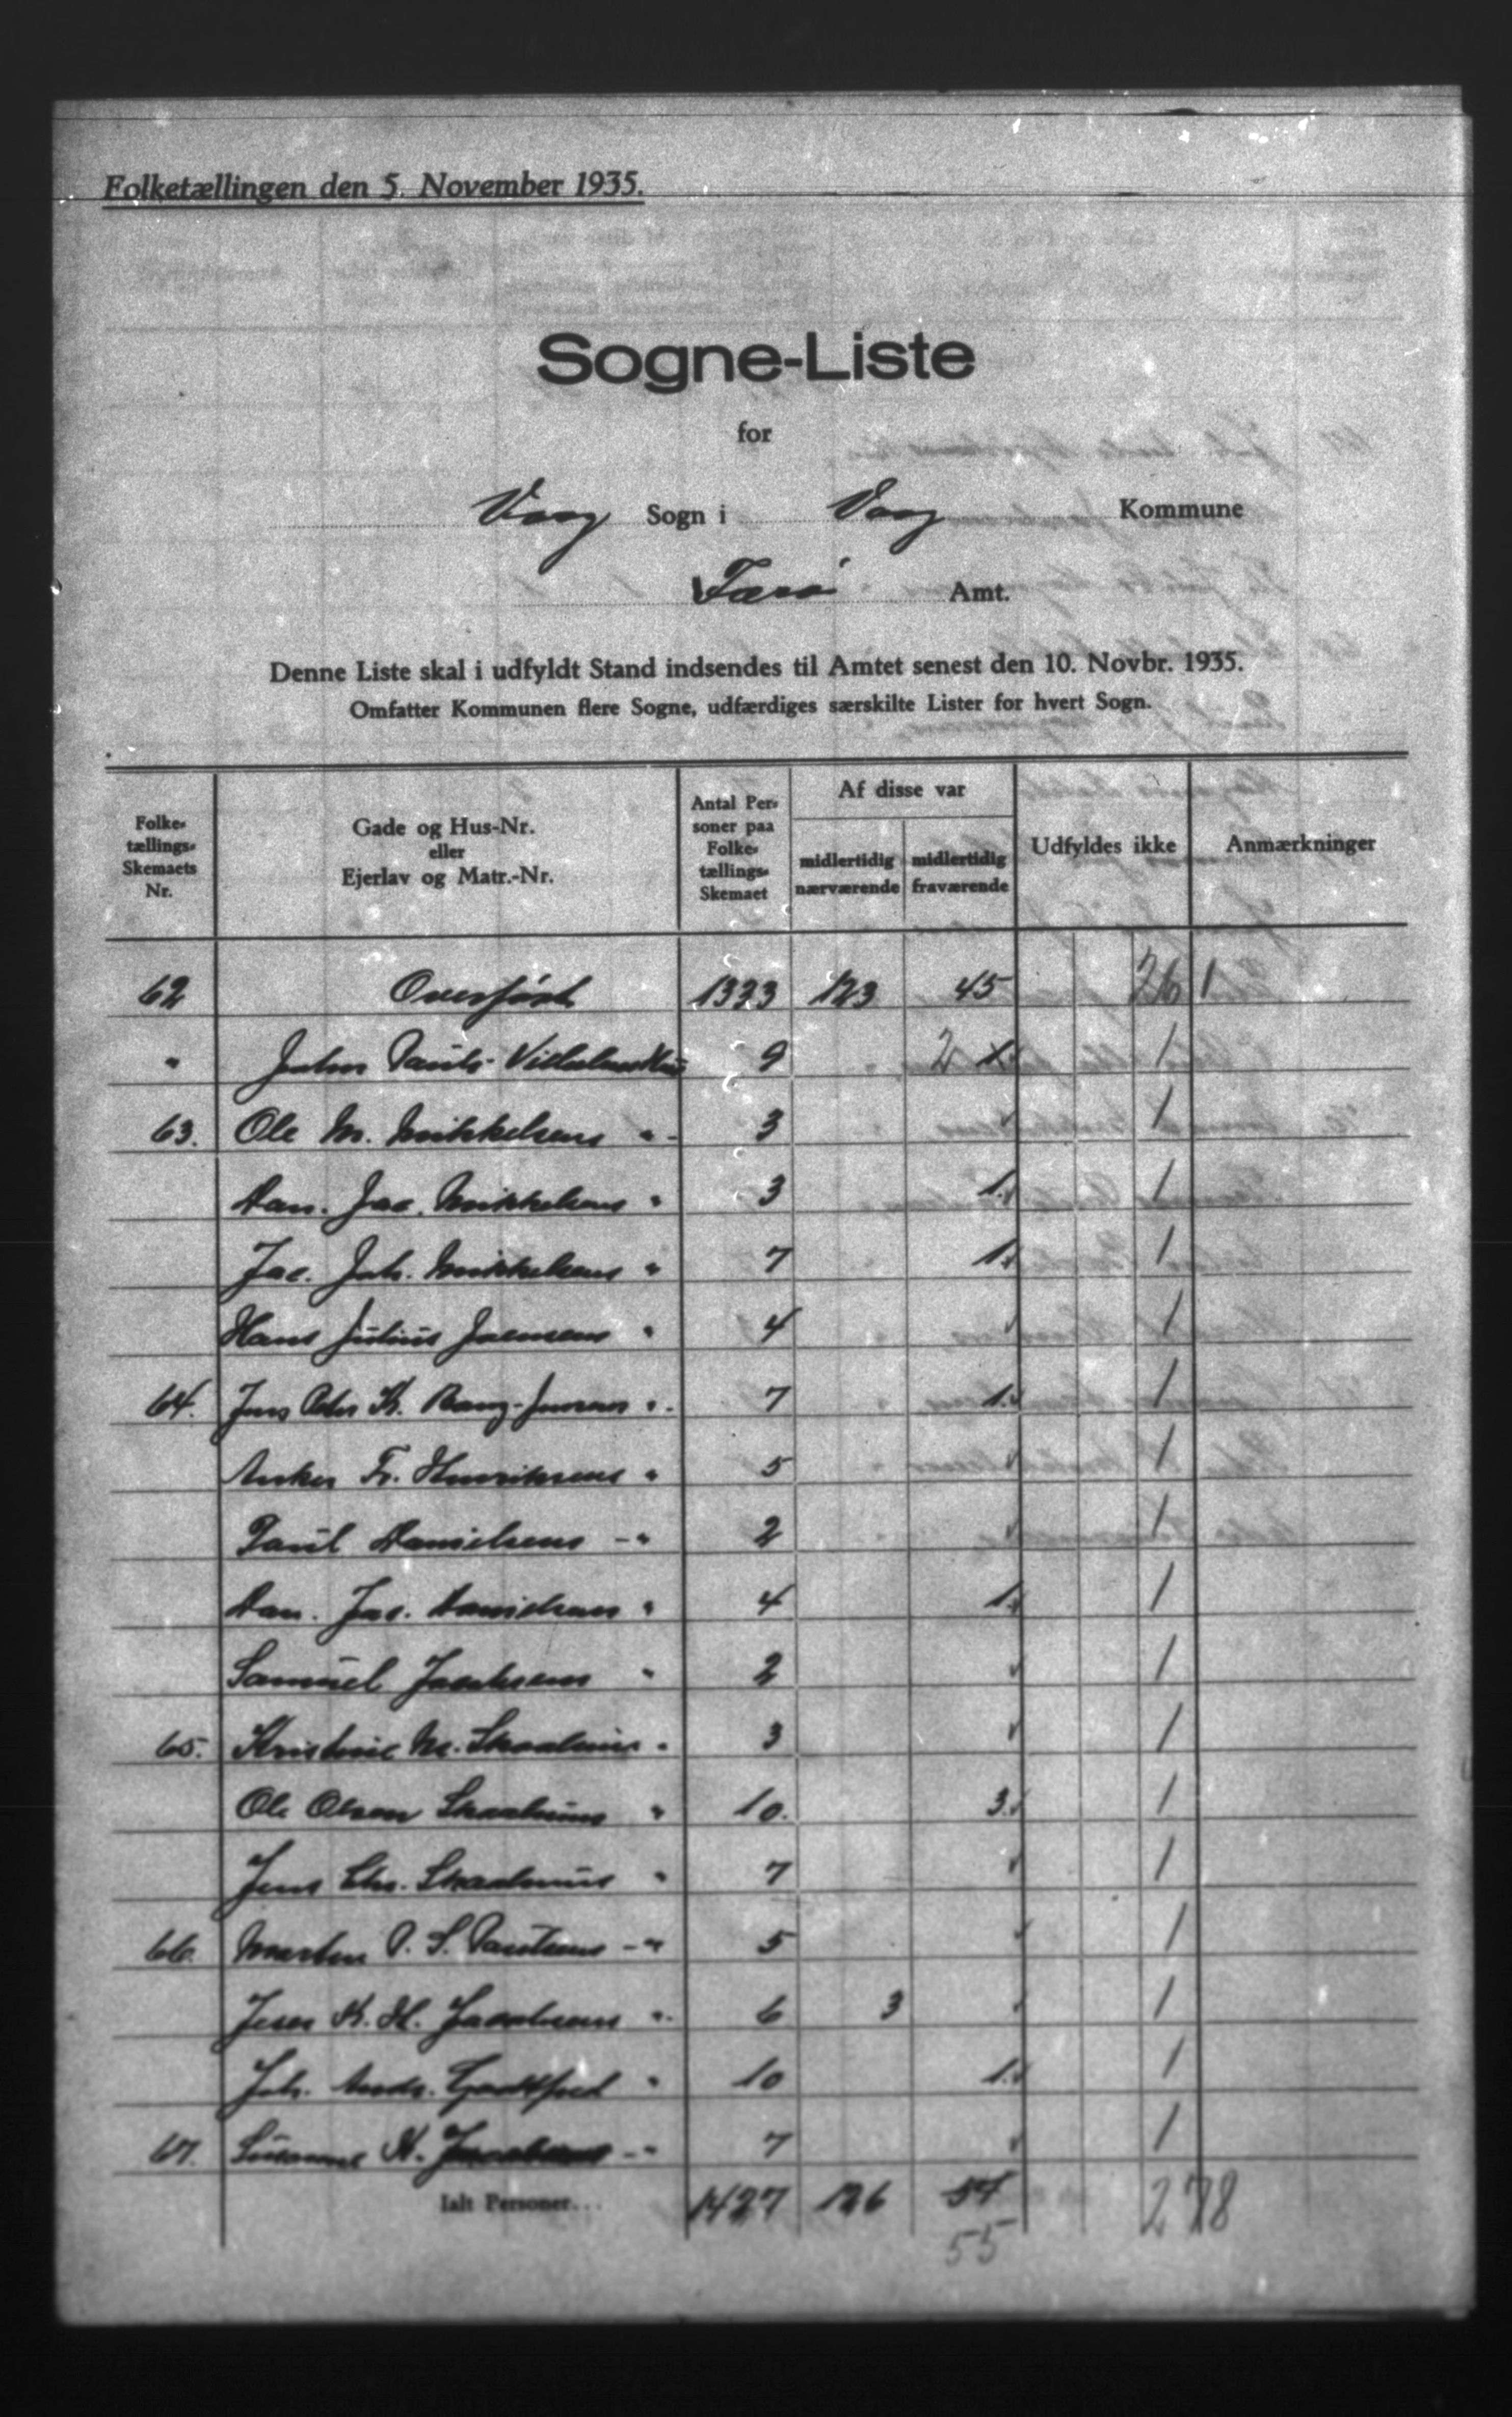 Folketællingen den 5. November 1935.
Sogne-Liste
for
Vaag Sogn i Vaag Kommune
Færø Amt.
Denne Liste skal i udfyldt Stand indsendes til Amtet senest den 10. Novbr. 1935.
Omfatter Kommunen flere Sogne, udfærdiges særskilte Lister for hvert Sogn.
Folke-tællings-Skemaets Nr. Gade og Hus-Nr. eller Ejerlav og Matr.-Nr. Antal Personer paa Folke-tællings-Skemaet Af disse var midlertidig nærværende midlertidig fraværende Udfyldes ikke Anmærkninger
62 Overført 1333 123 45 261
" John Pauls Vilhelms Hus 9 2 1
63. Ole M. Mikkelsens " 3 1
Dan. Jac. Mikkelsens " 3 1 1
Jac. Joh. Mikkelsens " 7 1 1
Hans Julius Joensens " 4 1
64. Jens Peter K. Bang-Jensens " 7 1 1
Anker Fr. Henriksens " 5 1
Paul Danielsens " 2 1
Dan. Jac. Danielsens " 4 1 1
Samuel Jacobsens " 2 1
65. Kristine M. Skaalum " 3 1
Ole Olsen Skaalums " 10. 3 1
Jens Chr. Skaalums " 7 1
66. Morten P. S. Poulsens " 5 1
K. H. Jacobsens " 6 3 1
Joh. Andr. Godtfred " 10 1 1
67. Susanne K. " 7 1
Ialt Personer... 1427 126 54 278
55